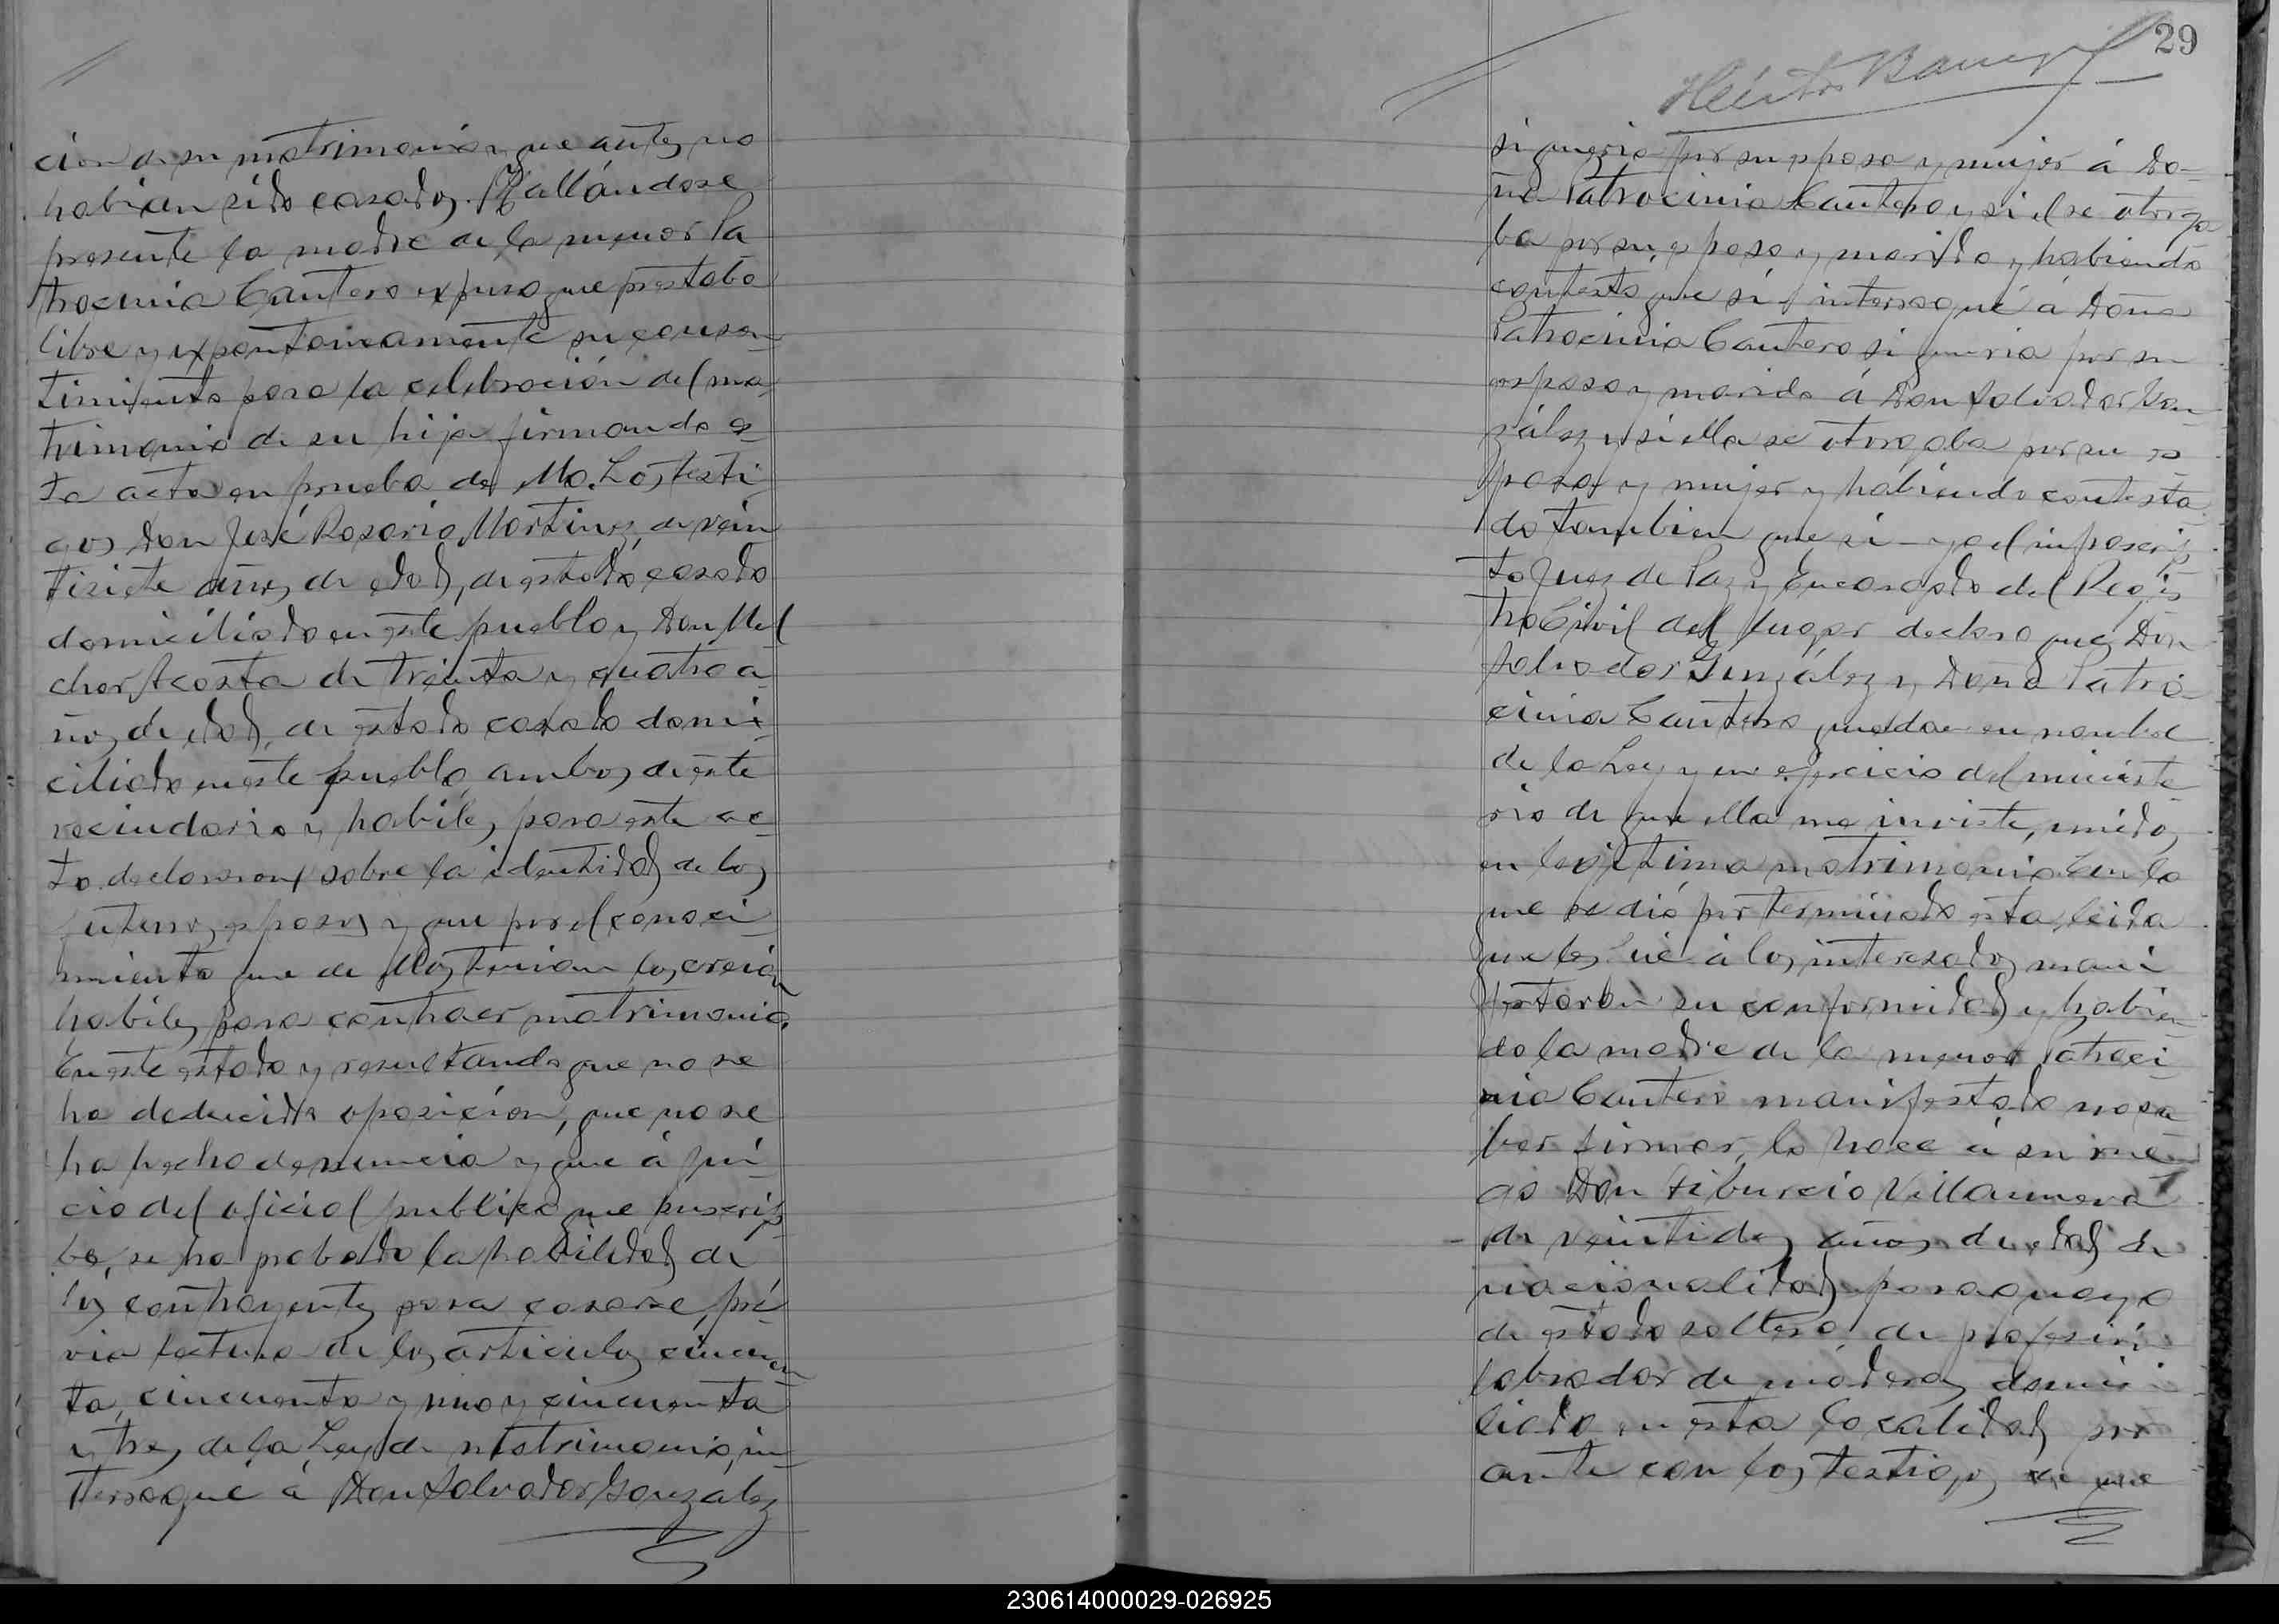 cion de su matrimonio y que antes no
habian sido casados. Hallándose
presente la madre de la menor Pa
trocinia Cantero expuso que prestaba
libre y expontaneamente su consen
timiento para la celebración del ma
trimonio de su hija firmando es
ta acta en prueba de ello. Los testi
gos Don José Rosario Martinez, de vein
tisiete años de edad, de estado casado
domiciliado en este pueblo y Don Mel
chor Acosta de treinta y cuatro a
ños de edad, de estado casado domi
ciliado en este pueblo, ambos de este
vecindario y habiles para este ac
to declararon sobre la identidad de los
futuros esposos y que por el conoci
miento que de ellos tenian los creian
habiles para contraer matrimonio.
En este estado y resultando que no se
ha deducido oposición, que no se
ha hecho denuncia y que á jui
cio del oficial publico que suscri
be, se ha probado la habilidad de
los contrayentes para casarse, pré
via lectura de los articulos cincuen
ta, cincuenta y uno y cincuenta
y tres de la Ley de Matrimonio, in
terrogué á Don Salvador González
29
Héctor
si queria por su esposa y mujer á Do-
ña Patrocinia Cantero y si el se otorga
ba por su esposo y marido y habiendo
contesto que sí interrogué á Doña
Patrocinia Cantero si queria por su
esposo y marido á Don Salvador Gon
zález y si ella se otorgaba por su es
posa y mujer y habiendo contesta
do tambien que si- yo el infrascrip
to Juez de Paz y Encargado del Regis
tro Civil del lugar declaro que Don
Salvador González y Doña Patro
cinia Cantero quedan en nombre
de la Ley y en ejercicio del ministe
rio de que ella me inviste, unidos
en lejitimo matrimonio. Con lo
que se dió por terminado esta, leida
que les fué á los interesados mani
festaron su conformidad y habien
do la madre de la menor Patroci
nia Cantero manifestado no sa
ber firmar, lo hace á su rue
go Don Tiburcio Villanueva
de veintidos años de edad, de
nacionalidad paraguaya
de estado soltero, de profesión
labrador de maderas domici
liado en esta localidad por
ante con los testigos de que
230614000029-026925